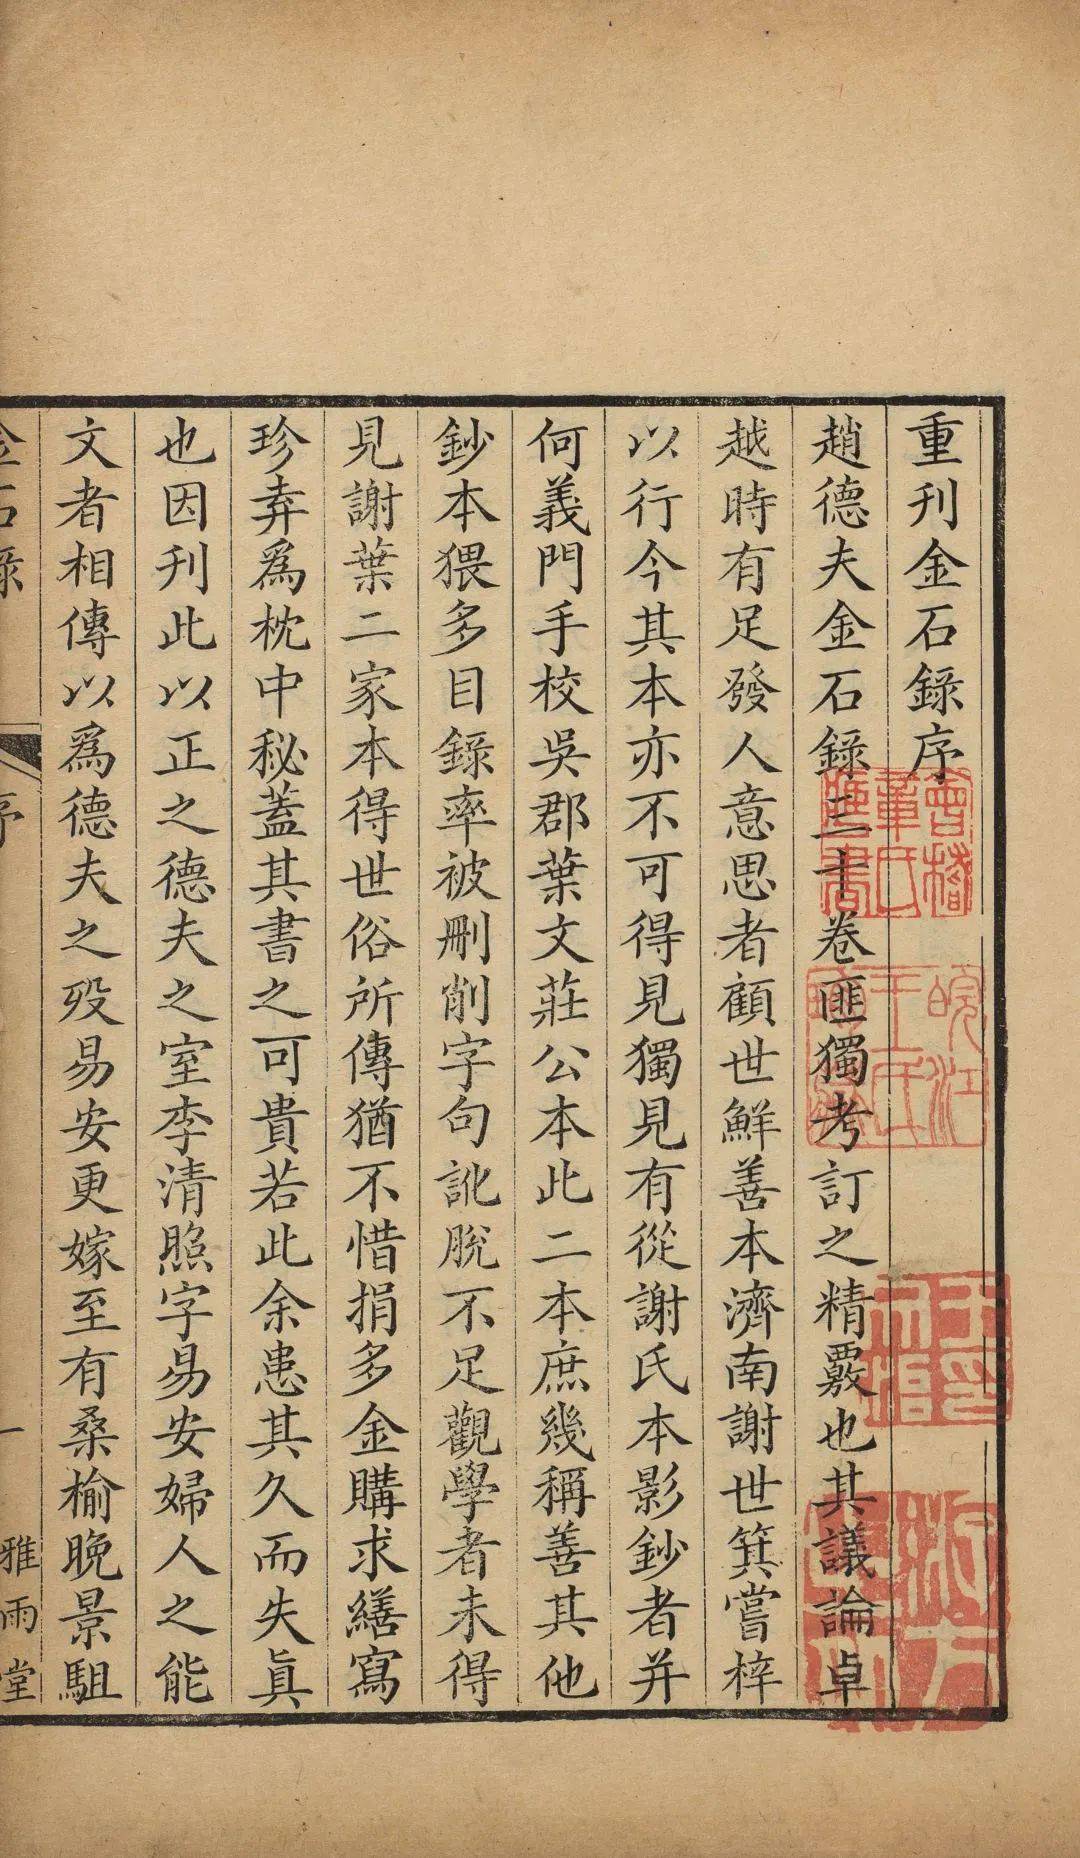 重刊金石錄序
趙德夫金石錄三十卷匪獨考訂之精覈也其議論卓
越時有足發人意思者顧世鮮善本濟南謝世箕嘗梓
以行今其本亦不可得見獨見有從謝氏本影鈔者并
何義門手校吳郡葉文莊公本此二本庶幾稱善其他
鈔本猥多目錄率被刪削字句訛脫不足觀學者未得
見謝葉二家本得世俗所傳猶不惜捐多金購求繕寫
珍弆爲枕中秘蓋其書之可貴若此余患其久而失眞
也因刊此以正之德夫之室李清照字易安婦人之能
文者相傳以爲德夫之歿易安更嫁至有桑榆晚景駔
金石錄
序
一
雅雨堂
會稽
章氏
皖江
王氏